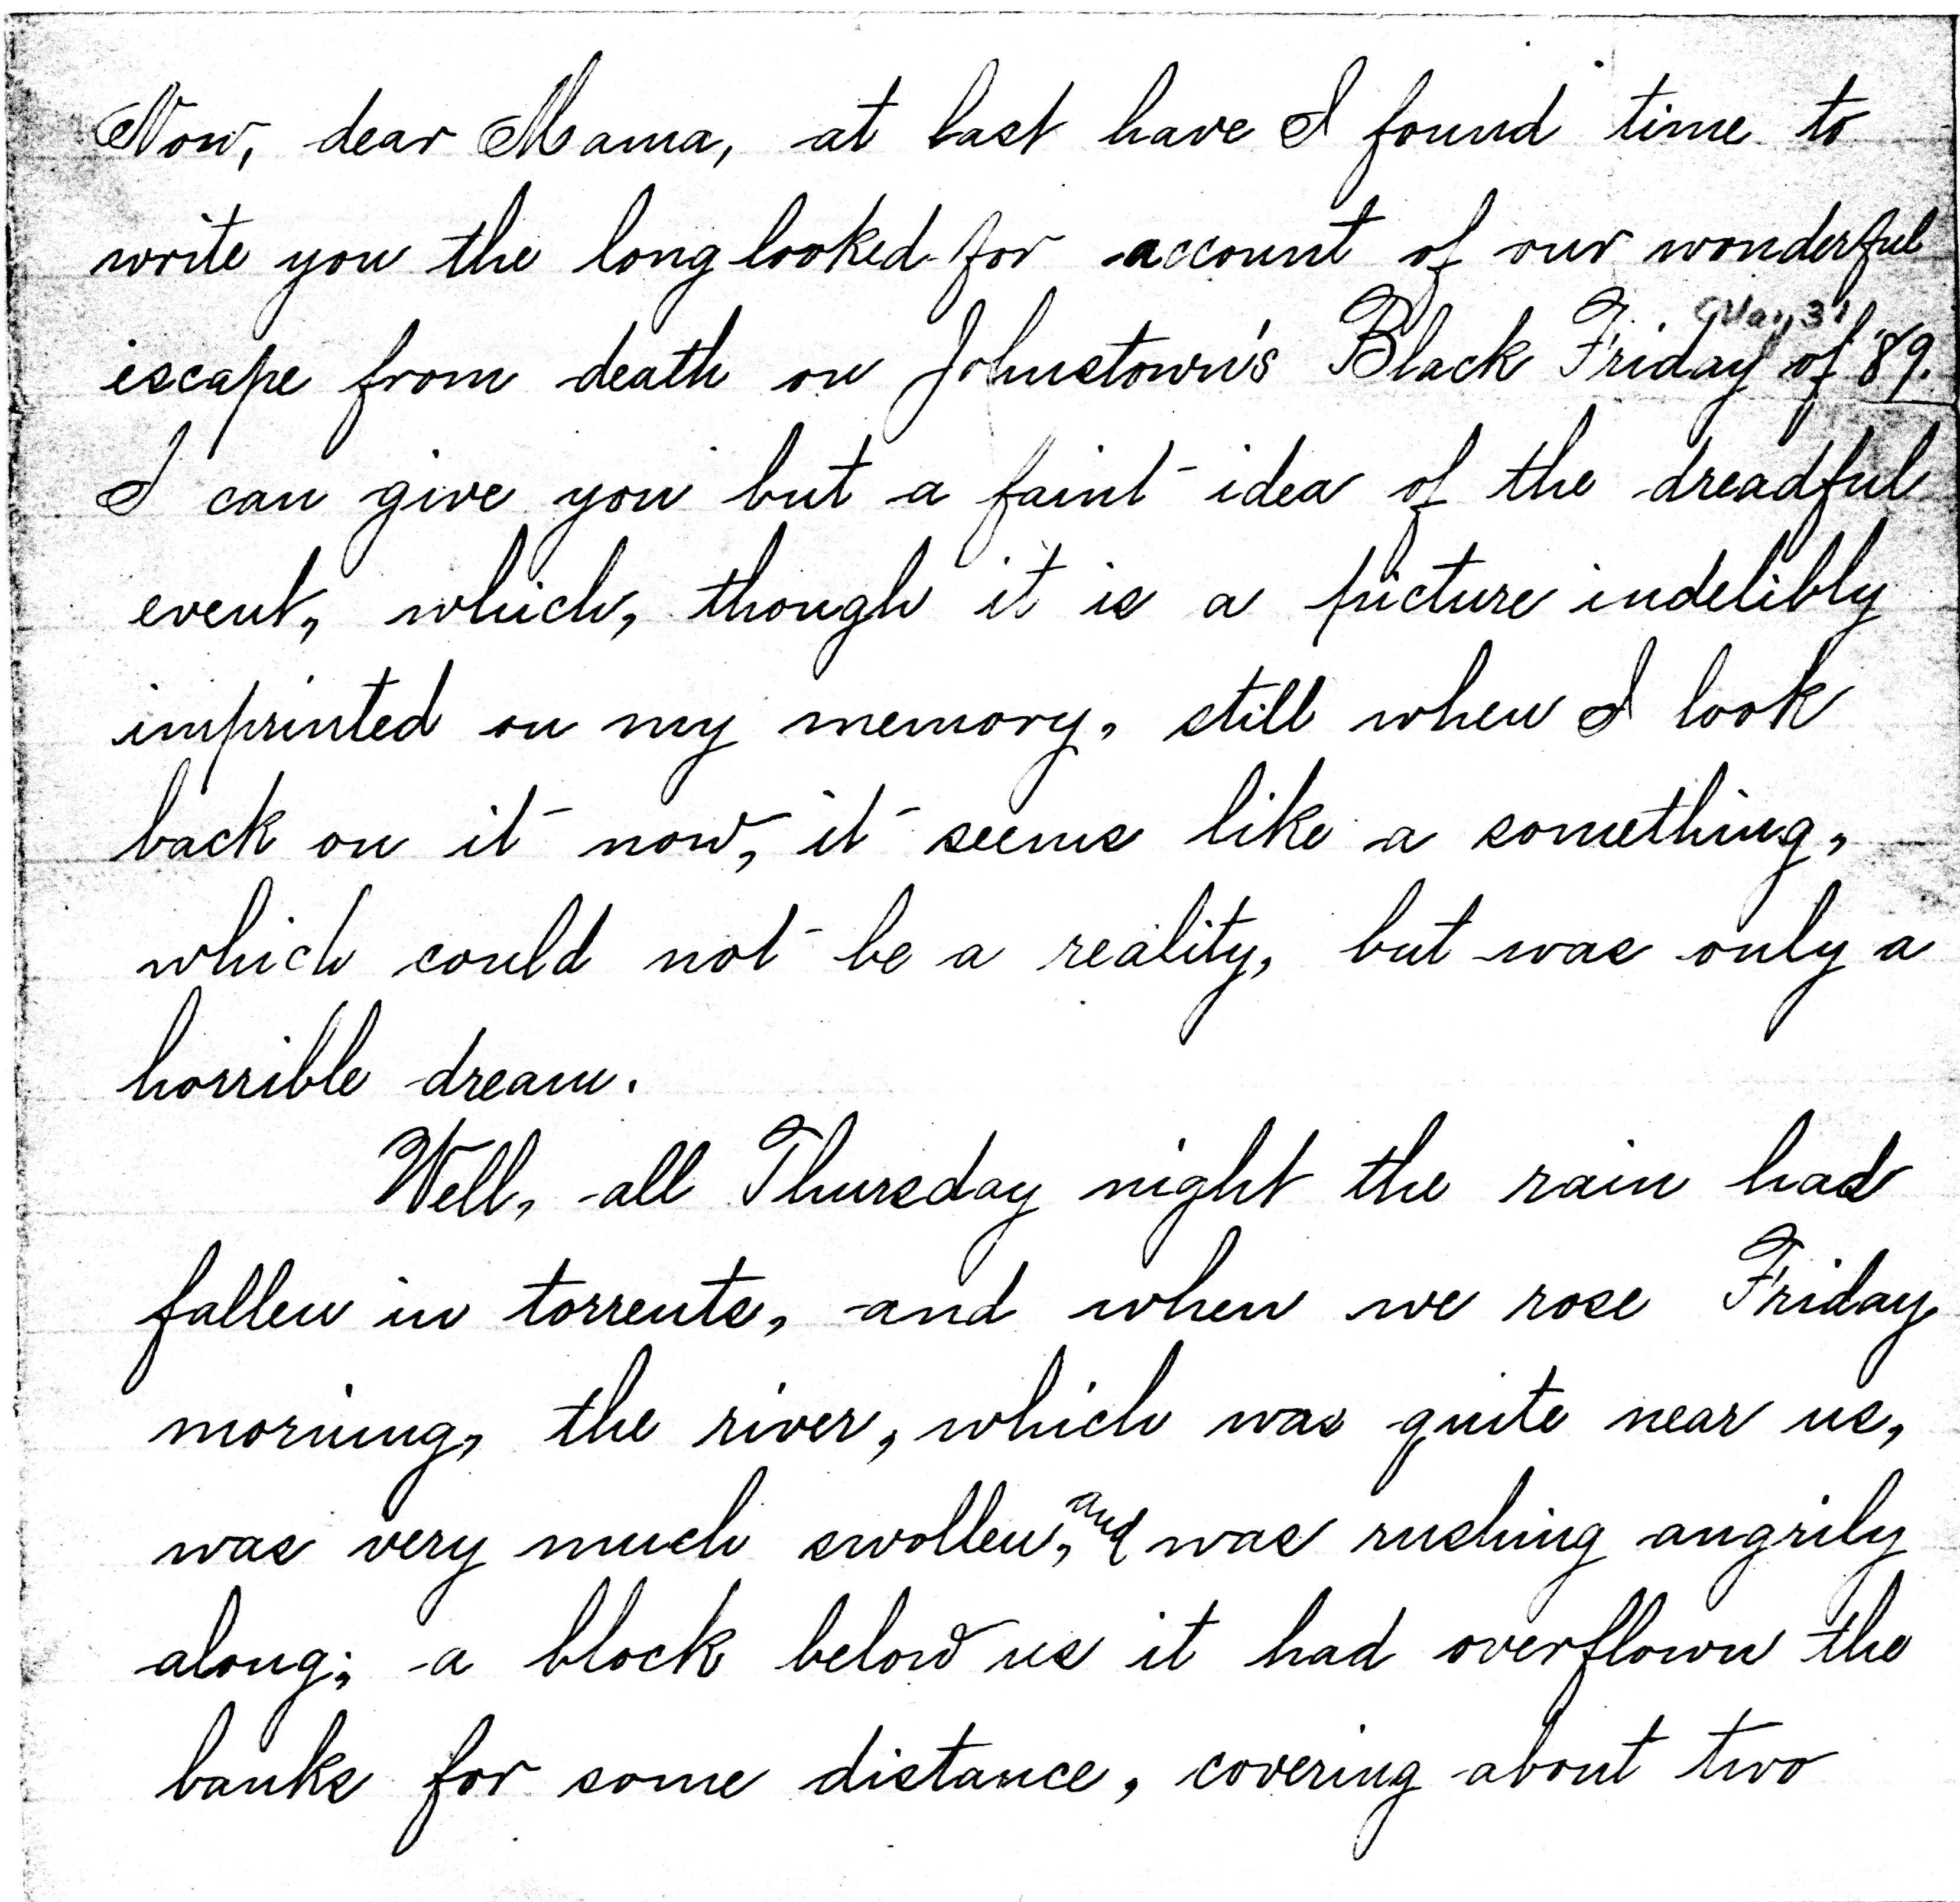 Now, dear Mama, at last have I found time to
write you the long looked for account of our wonderful
May 31
escape from death on Johnstown's Black Friday of '89.
I can give you but a faint idea of the dreadful
event, which, though it is a picture indelibly
imprinted on my memory, still when I look
back on it now, it seems like a something,
which could not be a reality, but was only a
horrible dream.
Well, all Thursday night the rain had
fallen in torrents, and when we rose Friday
morning, the river, which was quite near us,
was very much swollen, and was rushing angrily
along; a block below us it had overflown the
banks for some distance, covering about two